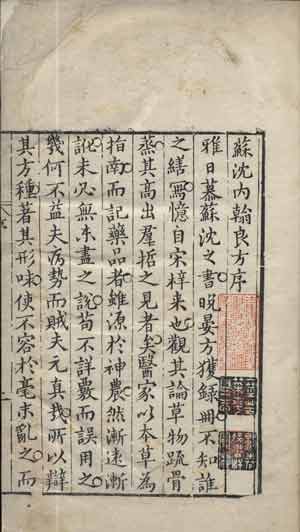 蘇沈內翰良方序
雅日慕蘇沈之書晚晏方獲録冊不知誰
之繕寫憶自宋梓来也觀其論草物疏骨
蒸其高出羣哲之見者至醫家以本草為
指南而記藥品者雖源於神農然漸遠漸
訛未必無未盡之說苟不詳覈而誤用之
幾何不益夫病勢而賊夫元真我所以辯
其方種著其形味使不容於毫末亂之而